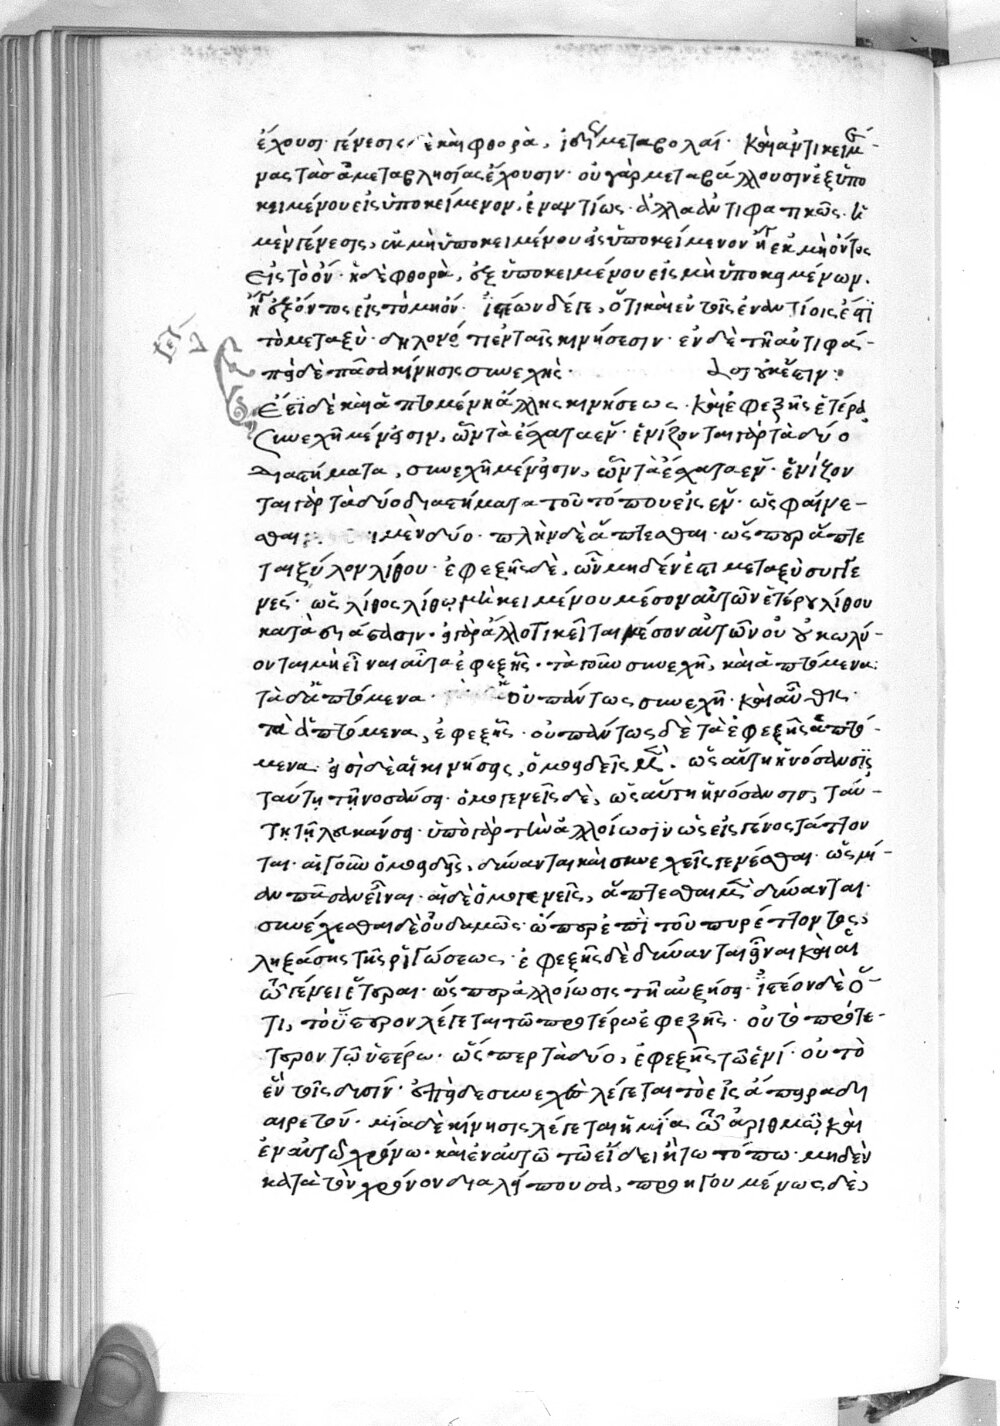 ἔχουσι γένεσις καὶ φθορὰ, μεταβολαί· καὶ ἀντικειμέ-
νας τὰς μεταβλησίας ἔχουσιν· οὐ γὰρ μεταβάλλουσιν ἐξ ὑπο
κειμένου εἰς ὑποκείμενον, ἐναντίως· ἀλλὰ ἀντιφατικῶς· ἡ
μὲν γένεσις, ἐκ μὴ ὑποκειμένου εἰς ὑποκείμενον ἢ ἐκ μὴ ὄντος
εἰς τὸ ὄν· ἡ δὲ φθορὰ, ἐξ ὑποκειμένου εἰς μὴ ὑποκείμενον.
ἢ ἐξ ὄντος εἰς τὸ μὴ ὄν· ὅτι καὶ ἐν τοῖς ἐναντίοις ἐστὶ
τὸ μεταξὺ· δηλονότι ἐν ταῖς κινήσεσιν· ἐν δὲ τῇ ἀντιφά-
σει δὲ πᾶσα κίνησις συνεχής· οὐκ ἔστιν:
ἔτι δὲ καὶ ἁπτομένη ἄλλης κινήσεως· καὶ ἐφεξῆς ἑτέρα
συνεχῆ μέν εἰσιν, ὧν τὰ ἔσχατα ἕν· ἑνίζονται γὰρ τὰ δύο
διαστήματα, συνεχῆ μέν εἰσιν, ὧν τὰ ἔσχατα ἕν· ἑνίζον
ται γὰρ τὰ δύο διαστήματα τοῦ τόπου εἰς ἕν· ὡς φαίνε-
σθαι μὲν δύο· πλὴν δὲ ἅπτεσθαι· ὡς πῦρ ἅπτε
ται ξύλου λίθου· ἐφεξῆς δὲ, ὧν μηδέν ἐστι μεταξὺ συγγε
νές· ὡς λίθος λίθῳ, μὴ κειμένου μέσον αὐτῶν ἑτέρου λίθου
κατὰ διάστασιν· εἰ γὰρ ἄλλό τι κεῖται μέσον αὐτῶν οὐ κωλύ-
ονται μὴ εἶναι αὐτὰ ἐφεξῆς· τὰ γοῦν συνεχῆ, καὶ ἁπτόμενα·
τὰ δ' ἁπτόμενα· οὐ πάντως συνεχῆ· καὶ αὖθις
τὰ ἁπτόμενα, ἐφεξῆς· οὐ πάντως δὲ τὰ ἐφεξῆς ἁπτό-
μενα· εἰσὶ δὲ αἱ κινήσεις, ὁμοειδεῖς μὲν· ὡς αὕτη ἡ νόσανσις
ταύτῃ τῇ νοσάνσει· ὁμογενεῖς δὲ, ὡς αὕτη ἡ νόσανσις, ταύ-
τῃ τῇ λευκάνσει· ὑπὸ γὰρ τὴν ἀλλοίωσιν ὡς εἰς γένος τάττον
ται· αἱ γοῦν ὁμοειδεῖς, δύνανται καὶ συνεχεῖς γενέσθαι· ὡς μί-
αν πᾶσαν εἶναι· αἱ δὲ ὁμογενεῖς, ἅπτεσθαι μὲν δύνανται·
συνέχεσθαι δὲ οὐδαμῶς· ὥσπερ ἐπὶ τοῦ πυρέττοντος,
ληξάσης τῆς ῥιγώσεως· ἐφεξῆς δὲ δύνανται εἶναι καὶ αἱ
τῷ γένει ἕτεραι· ὡς πρὸς ἀλλοίωσις τῇ αὐξήσει· ἰστέον δὲ ὅ-
τι, τὸ ὕστερον λέγεται τῶ προτέρω ἐφεξῆς· οὐ τὸ πρότε-
τερον τῶ ὑστέρω· ὥσπερ τὰ δύο, ἐφεξῆς τῶ ἑνί· οὐ τὸ
ἓν τοῖς δυσίν· ἐπεὶ δὲ συνεχὲς λέγεται τὸ εἰς ἄπειρα δι
αιρετόν· μία δὲ κίνησις λέγεται ἡ μία τῷ ἀριθμῶ, καὶ
ἐν αὐτῶ χρόνω· καὶ ἐν αὐτῶ τῶ εἴδει ἤτω τόπω· μηδὲν
κατὰ τὸν χρόνον διαλείπουσα, προηγουμένως δὲ,